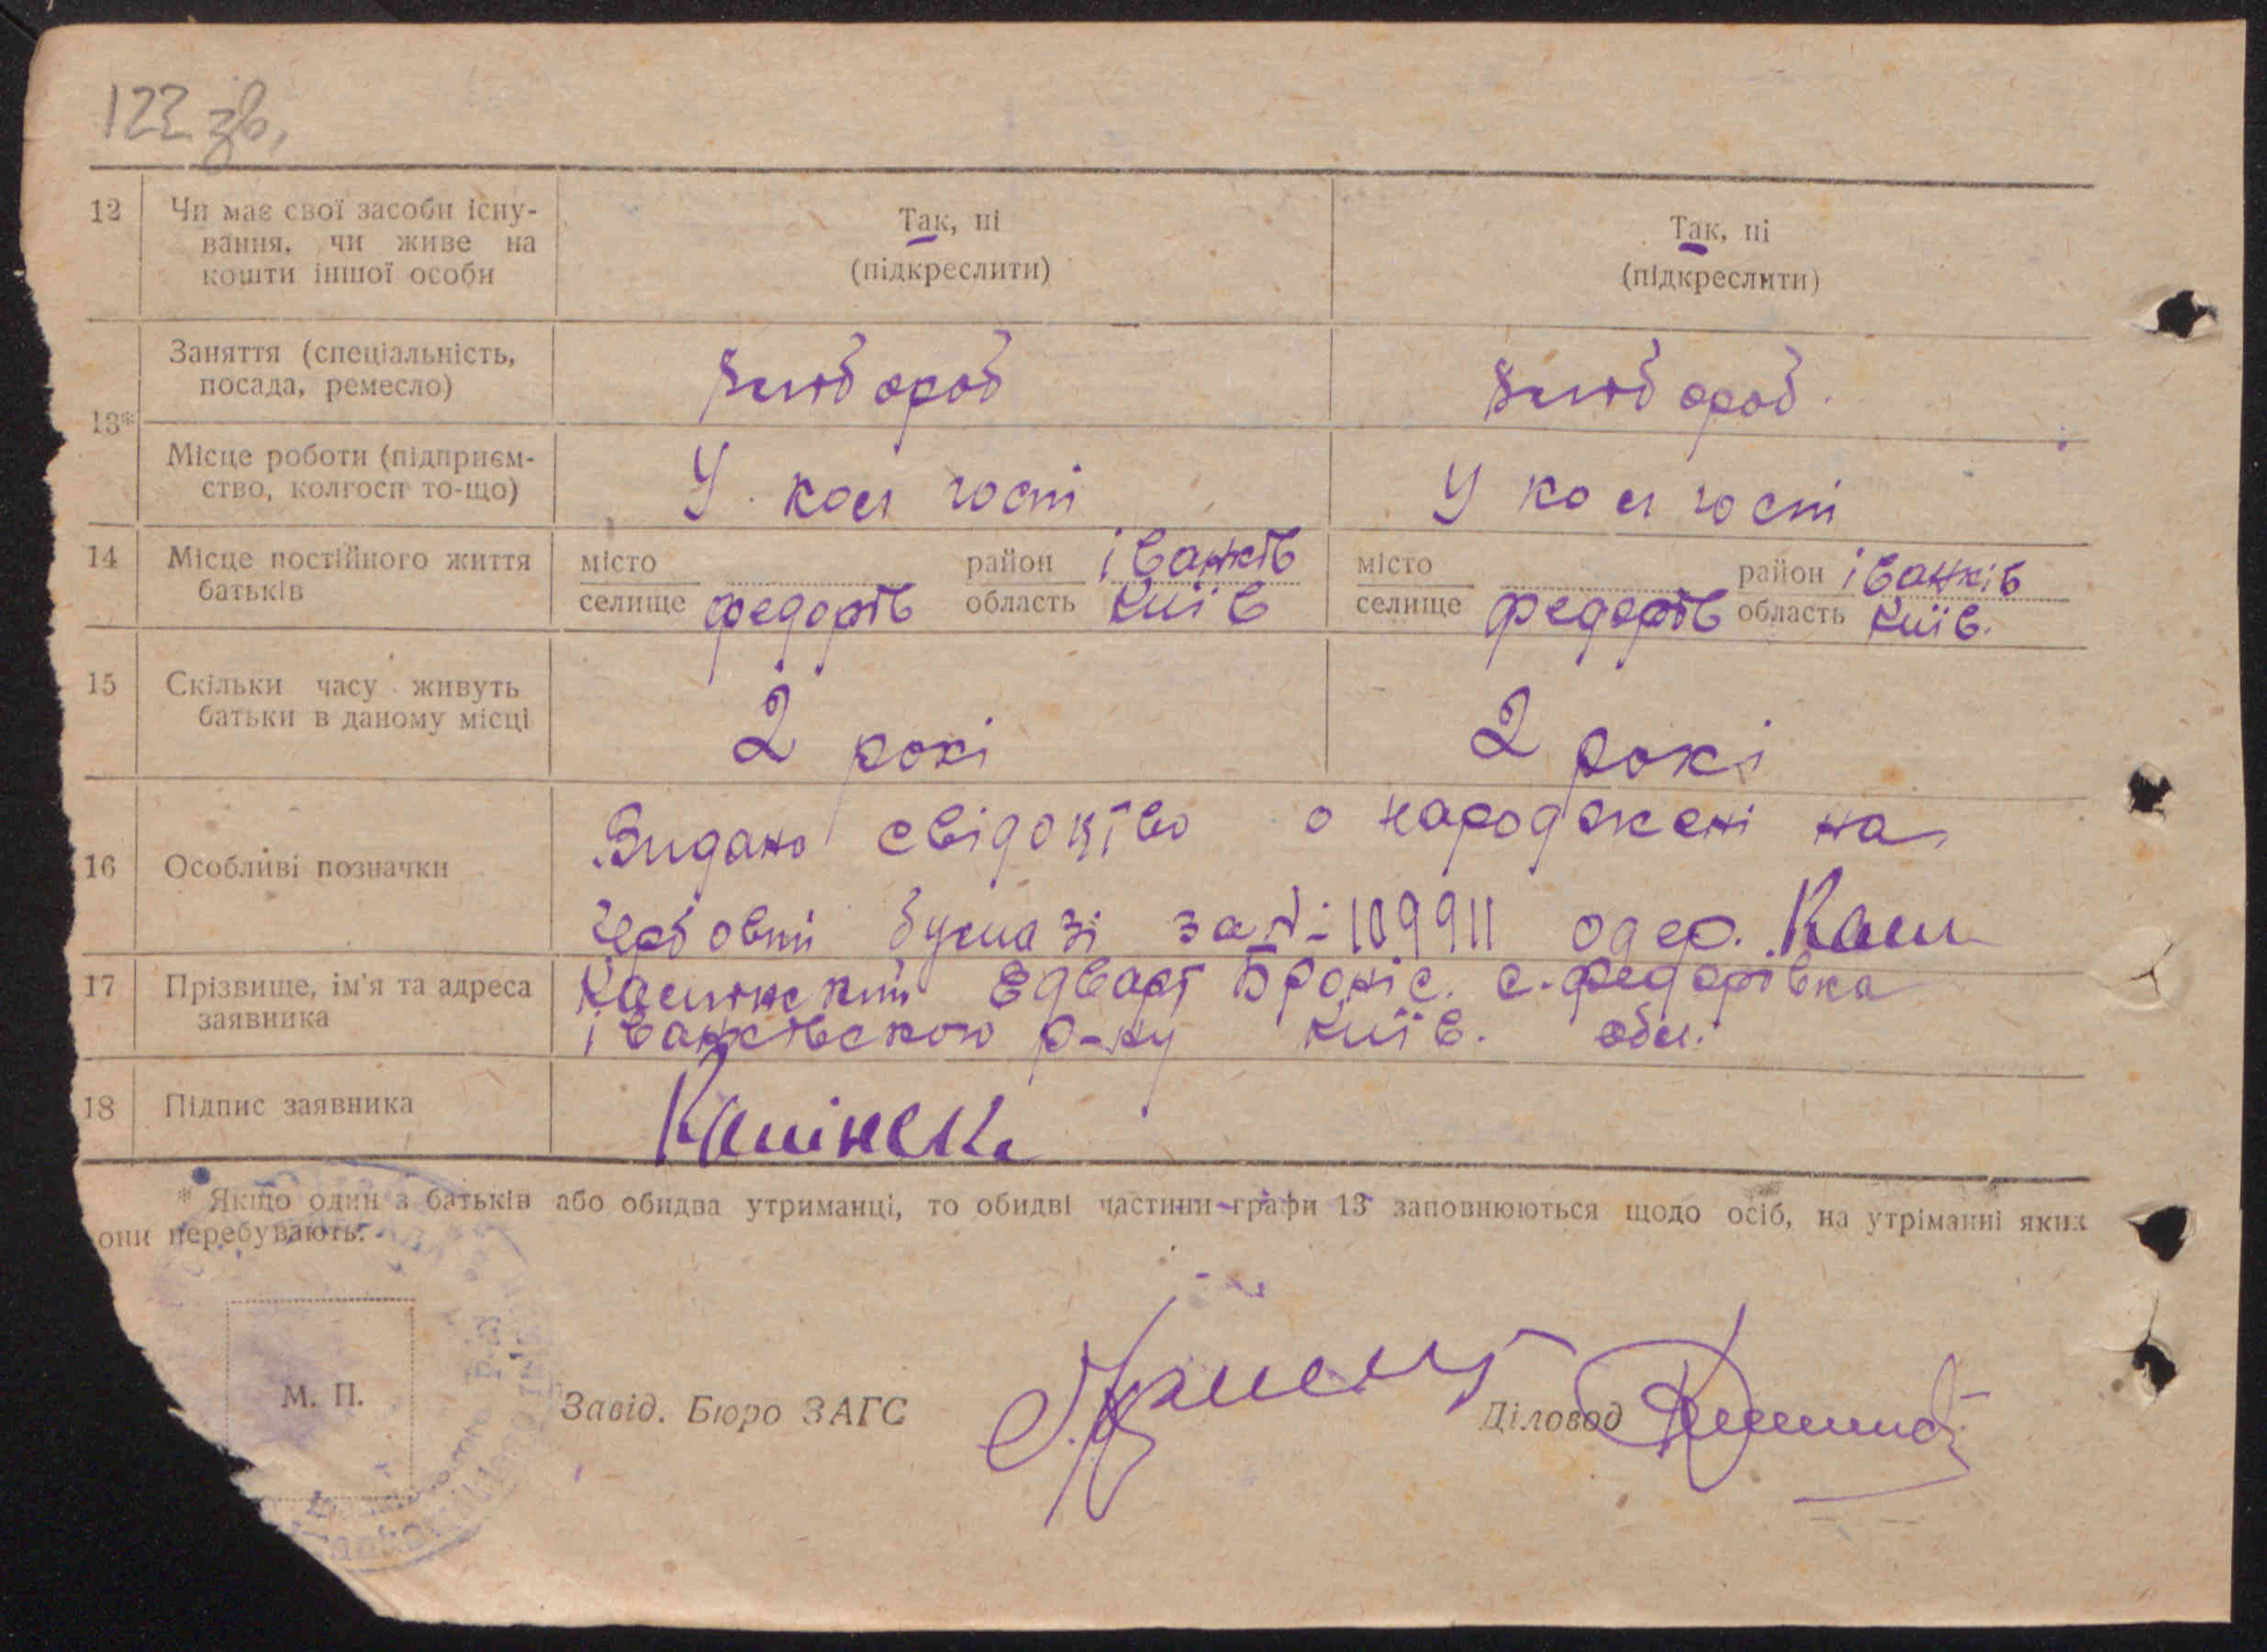 122 зв.
12 Чи має свої засоби існу-
вання, чи живе на
кошти іншої особи
Так, ні
(підкреслити)
Так, ні
(підкреслити)
13*
Заняття (спеціальність,
посада, ремесло)
хлібороб
хлібороб.
Місце роботи (підприєм-
ство, колгосп то-що)
У колгоспі
У колгоспі
14 Місце постійного життя
батьків
місто
селище федорів
район іванків
область Київ
місто
селище федорів
район іванків
область Київ.
15 Скільки часу живуть
батьки в даному місці
2 рокі
2 рокі
16 Особливі позначки
Видано свідоцтво о народжені на
гербовій бумазі за № 109911 одер. Кам
17 Прізвище, ім'я та адреса
заявника
Едварт Броніс. с. федорівка
іванківского р-ну Київ. обл.
18 Підпис заявника
Камінск
* Якщо один з батьків або обидва утриманці, то обидві частини графи 13 заповнюються щодо осіб, на утріманні яких
они перебувають.
М. П.
Завід. Бюро ЗАГС
Діловод